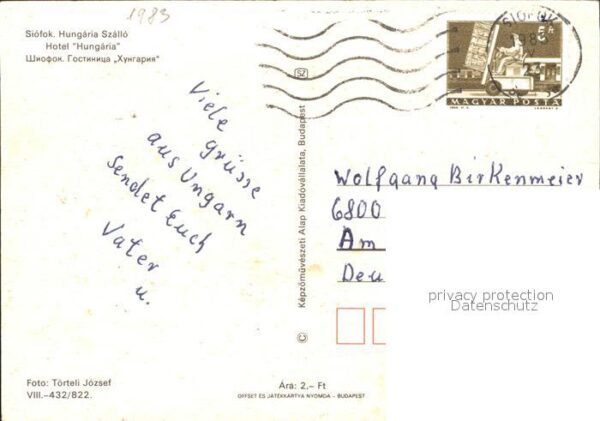 1983
Siófok. Hungária Szálló
Hotel "Hungária"
Шиофок. Гостиница „Хунгария"
Viele
grüsse
aus Ungarn
sendet Euch
Vater
u.
Foto: Törteli József
VIII.–432/822.
Ára: 2,– Ft
OFFSET ÉS JÁTÉKKÁRTYA NYOMDA – BUDAPEST
© Képzőművészeti Alap Kiadóvállalata, Budapest
SZ
SIÓFOK
MAGYAR POSTA
Wolfgang Birkenmeier
6800
Am
Deu
privacy protection
Datenschutz